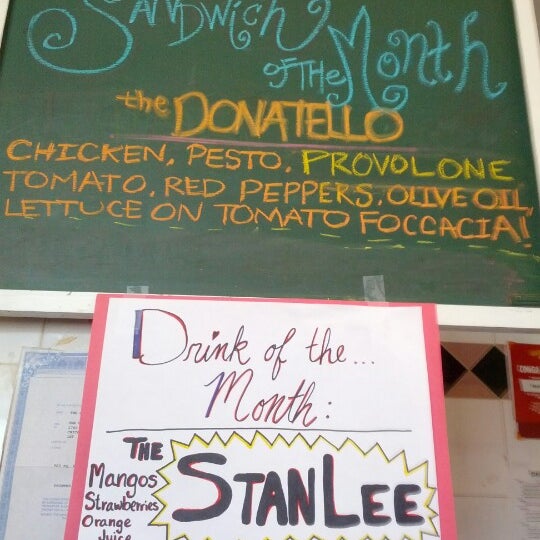 Sandwich
of the Month
the DONATELLO
CHICKEN, PESTO, PROVOLONE
TOMATO, RED PEPPERS, OLIVE OIL,
LETTUCE ON TOMATO FOCCACIA!
Drink of the...
Month:
THE
STANLEE
Mangos
Strawberries
Orange
Juice